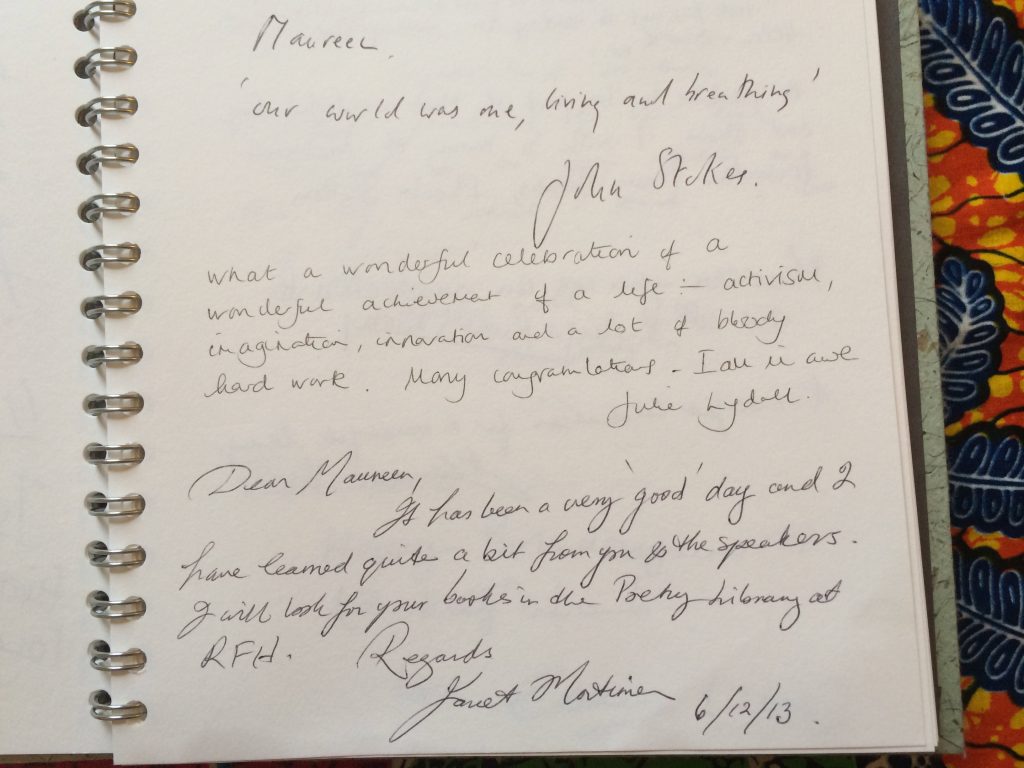 Maureen,
'our world was one, living and breathing'
John Stokes.
What a wonderful celebration of a
wonderful achievement of a life :- activism,
imagination, innovation and a lot of bloody
hard work. Many congratulations - I am in awe
Julie Lydall.
Dear Maureen,
It has been a very 'good' day and I
have learned quite a bit from you & the speakers.
I will look for your books in the Poetry Library at
RFH. Regards
Janet Mortimer 6/12/13.